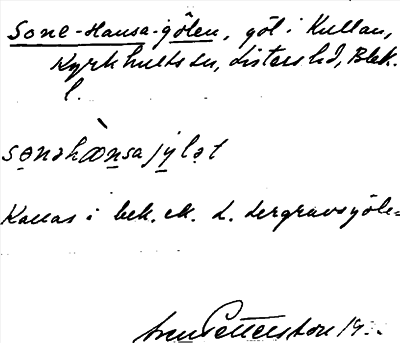 Sone-Hansa-gölen, göl i Kullan,
Kyrkhults sn, Listers hd, Blek.
l.
sǝnǝhànsajylǝt
Kallas i bek. ek. L. Lergravsgöle=
Sven Petterson 19